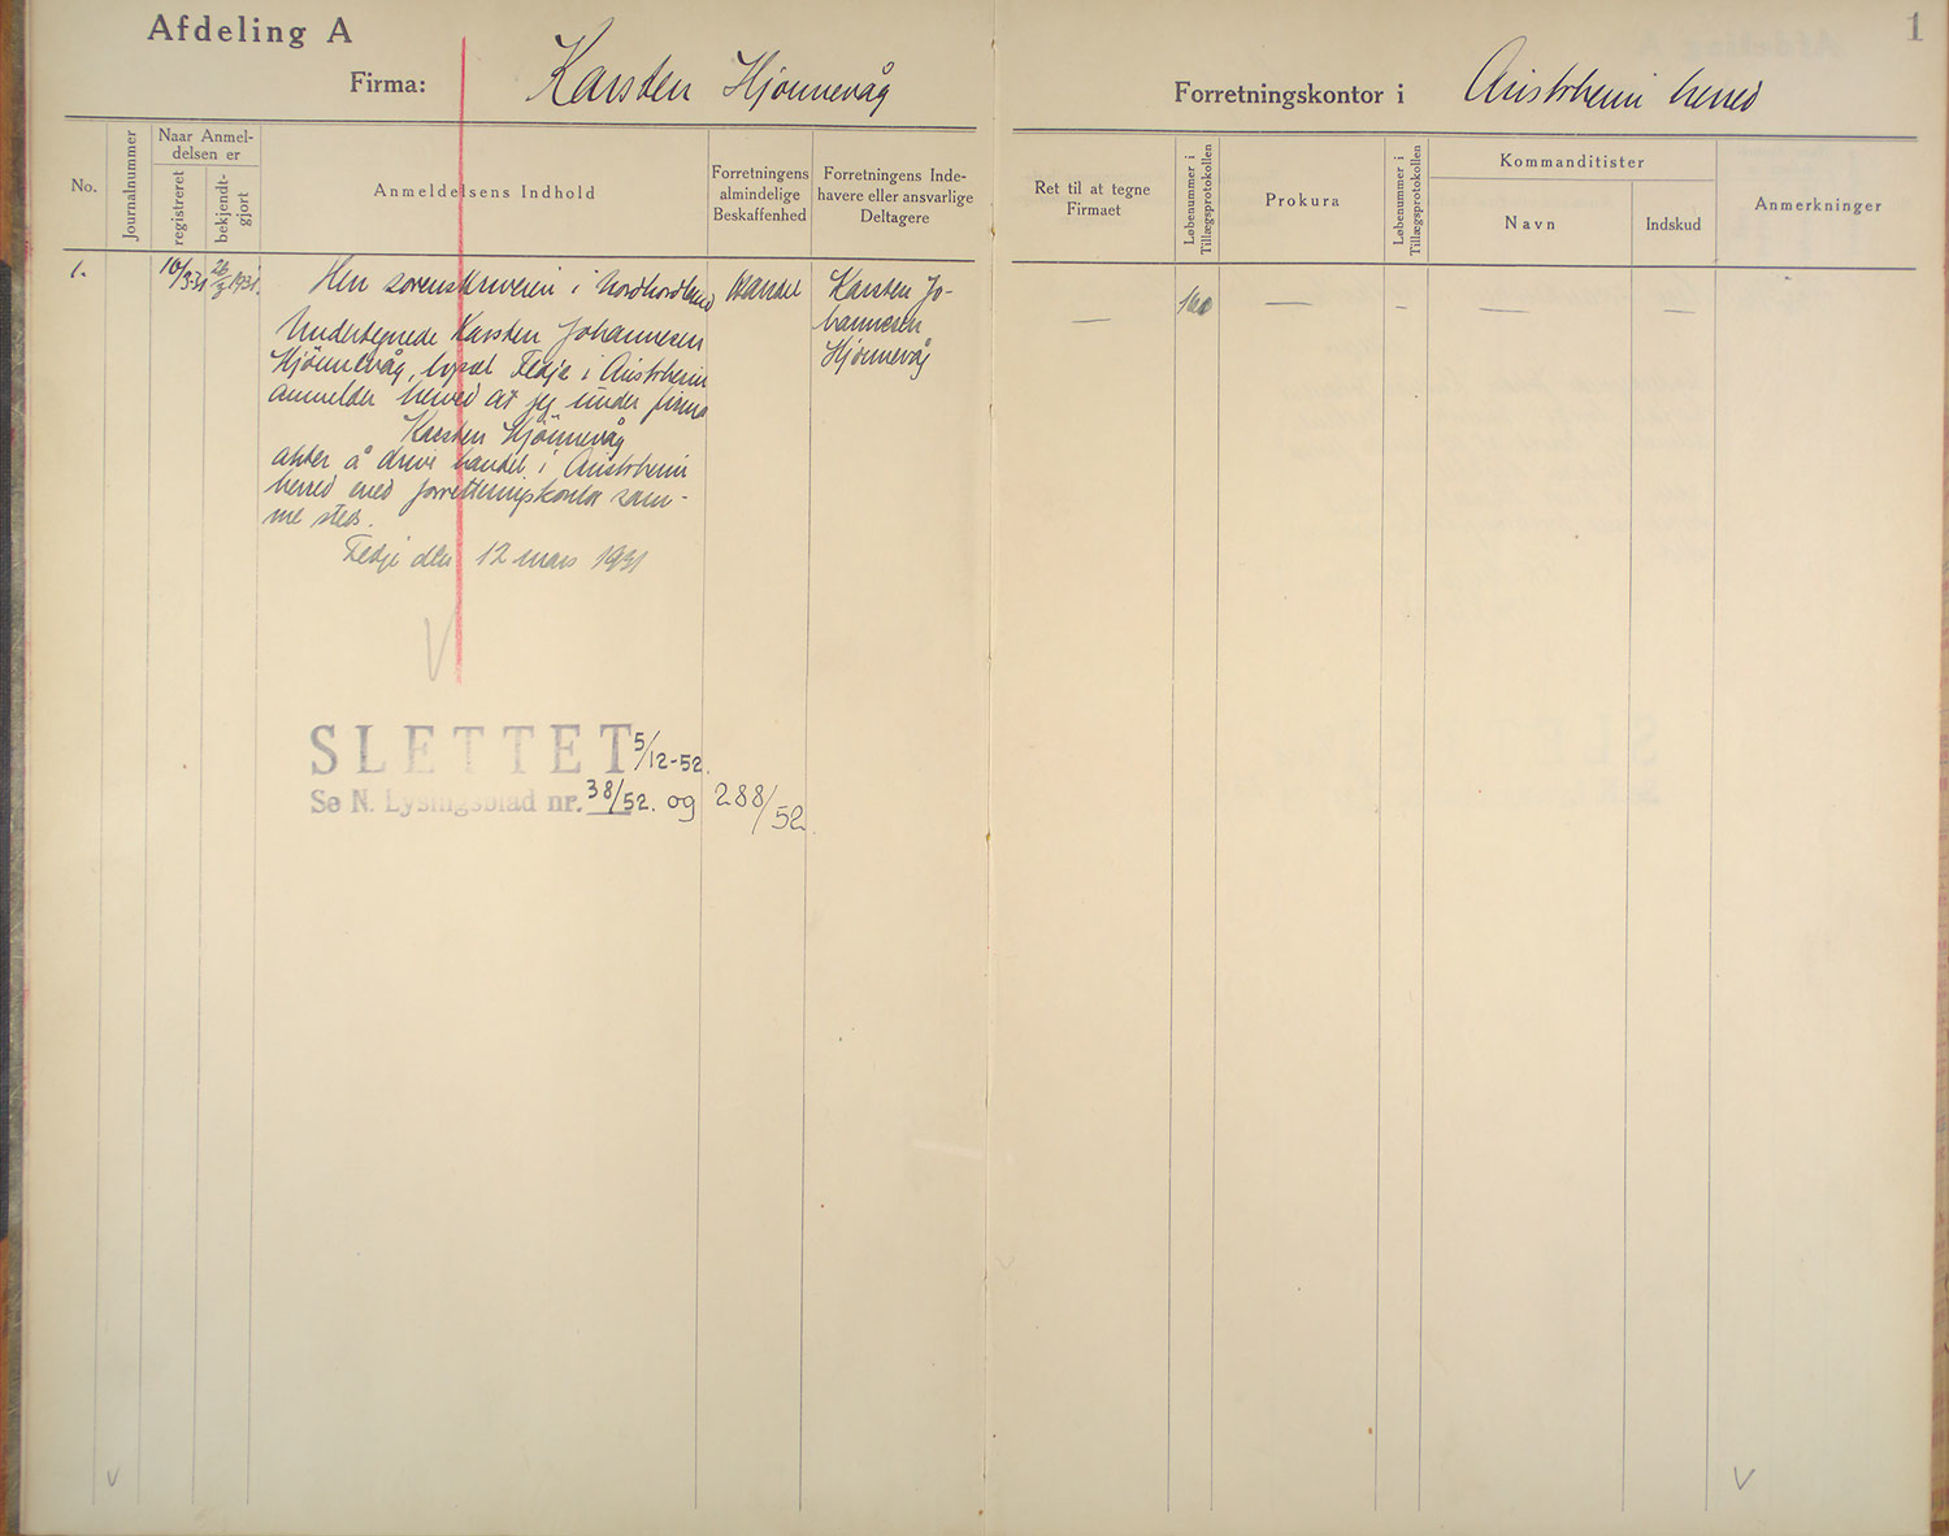 Afdeling A
Firma: Karsten Hjønnevåg
No.
Journalnummer
Naar Anmel-
delsen er
registreret
bekjendt-
gjort
Anmeldelsens Indhold
Forretningens
almindelige
Beskaffenhed
Forretningens Inde-
havere eller ansvarlige
Deltagere
1.
16/3-31
26/3 1931.
Herr sorenskriveren i Nordhordland
Undertegnede Karsten Johannesen
Hjönnevåg, bopæl Fedje i Austrheim
anmelder herved at jeg under firma
Karsten Hjönnevåg
akter å drive handel i Austrheim
herred med forretningskontor sam-
me sted.
Fedje den 12 mars 1931
Handel
Karsten Jo-
hannesen
Hjönnevåg
SLETTET 5/12-52.
Se N. Lysingsblad nr. 38/52. og 288/52
1
Forretningskontor i Austrheim herred
Ret til at tegne
Firmaet
Løbenummer i
Tillægsprotokollen
Prokura
Løbenummer i
Tillægsprotokollen
Kommanditister
Navn
Indskud
Anmerkninger
— — - — —